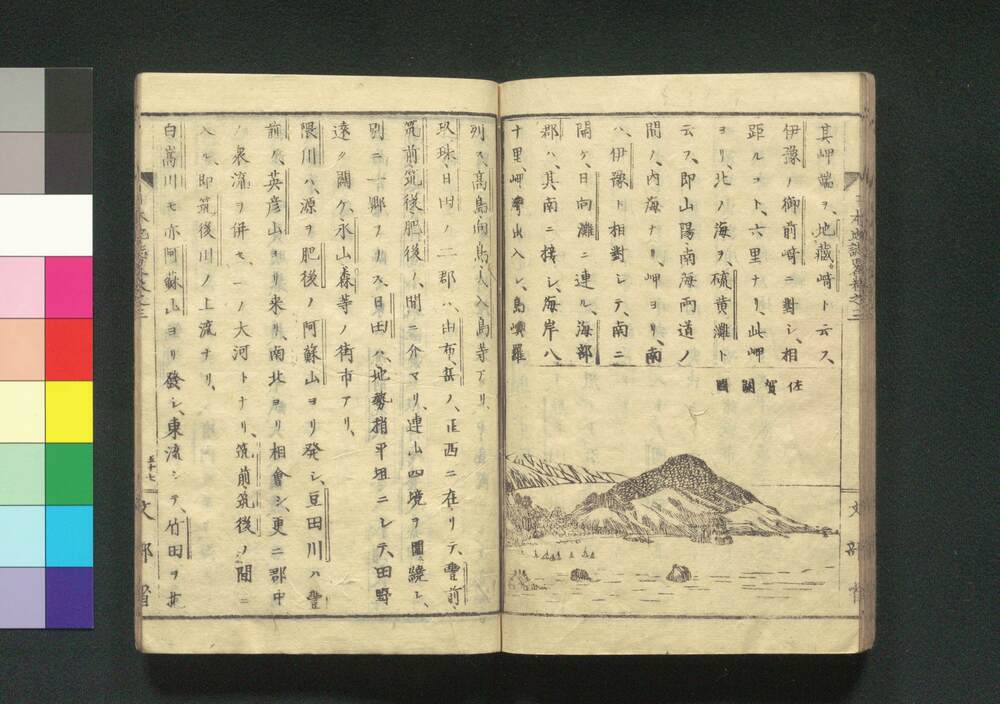 其岬端ヲ、地藏﨑ト云フ、
伊豫ノ御前﨑ニ對シ、相
距ルコト、六里ナリ、此岬
ヨリ、北ノ海ヲ、硫黄灘ト
云フ、即山陽南海兩道ノ
間ノ、内海ナリ、岬ヨリ、南
ハ、伊豫ト相對シテ、南ニ
開ケ、日向灘ニ連ル、海部
郡ハ、其南ニ接シ、海岸八
十里、岬灣出入シ、島嶼羅
佐賀關圖
列ス、髙島向島大入島等アリ、
玖珠日田ノ二郡ハ、由布岳ノ、正西ニ在リテ、豊前
筑前筑後肥後ノ、間ニ介マリ、連山四境ヲ圍繞シ、
別ニ一郷ヲナス、日田ハ、地勢稍平坦ニシテ、田野
遠ク闢ケ、永山森等ノ街市アリ、
隈川ハ、源ヲ肥後ノ阿蘇山ヨリ発シ、豆田川ハ豊
前ノ、英彦山ヨリ来リ、南北ヨリ相會シ、更ニ郡中
ノ衆流ヲ併セ、一ノ大河トナリ、筑前筑後ノ間ニ
入ル、即筑後川ノ上流ナリ、
白嵩川モ亦阿蘇山ヨリ發シ、東流シテ、竹田ヲ
五十七
文部省